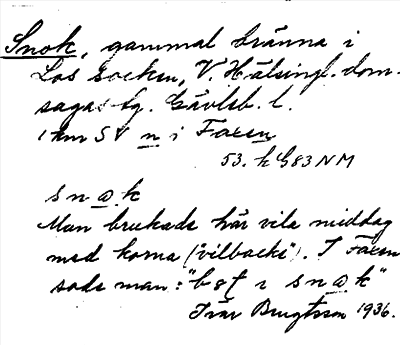 Snok, gammal bränna i
Los socken, V. Hälsingl. dom-
sagas tg. Gävleb. l.
1 km SV n i Faxen
53. k G83 NM
s n @ k
Man brukade här vila middag
med korna ("vilbacke"). I Faxen
sade man: "b ı s n @ k"
Ivar Bengtsson 1936.